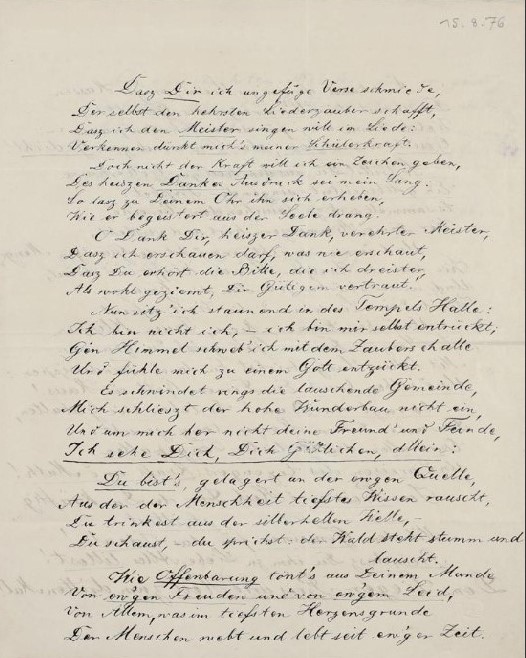 15. 8. 76
Dasz Dir ich ungefüge Verse schmiede,
Der selbst den hehrsten Liederzauber schafft,
Dasz ich den Meister singen will im Liede:
Verkennen dünkt mich's meiner Schülerkraft.
Doch nicht der Kraft will ich ein Zeichen geben,
Des heiszen Dankes Ausdruck sei mein Sang.
So lasz zu Deinem Ohr ihn sich erheben,
Wie er begeistert aus der Seele drang.
O Dank Dir, heiszer Dank, verehrter Meister,
Dasz ich erschauen darf, was nie erschaut,
Dasz Du erhört die Bitte, die ich dreister,
Als wohl geziemt, Dir Gütigem vertraut!
Nun sitz' ich staunend in des Tempels Halle:
Ich bin nicht ich, – ich bin mir selbst entrückt;
Gen Himmel schweb' ich mit dem Zauberschalle
Und fühle mich zu einem Gott entzückt.
Es schwindet rings die lauschende Gemeinde,
Mich schlieszt der hohe Wunderbau nicht ein,
Und um mich her nicht deine Freund' und Feinde,
Ich sehe Dich, Dich Göttlichen, allein:
Du bist's, gelagert an der ew'gen Quelle,
Aus der der Menschheit tiefstes Wissen rauscht,
Du trinkest aus der silberhellen Welle,
Du schaust, – du sprichst: der Wald steht stumm und
lauscht.
Wie Offenbarung tönt's aus Deinem Munde
Von ew'gen Freuden und von ew'gem Leid,
Von Allem, was im tiefsten Herzensgrunde
Der Menschen webt und lebt seit ew'ger Zeit.